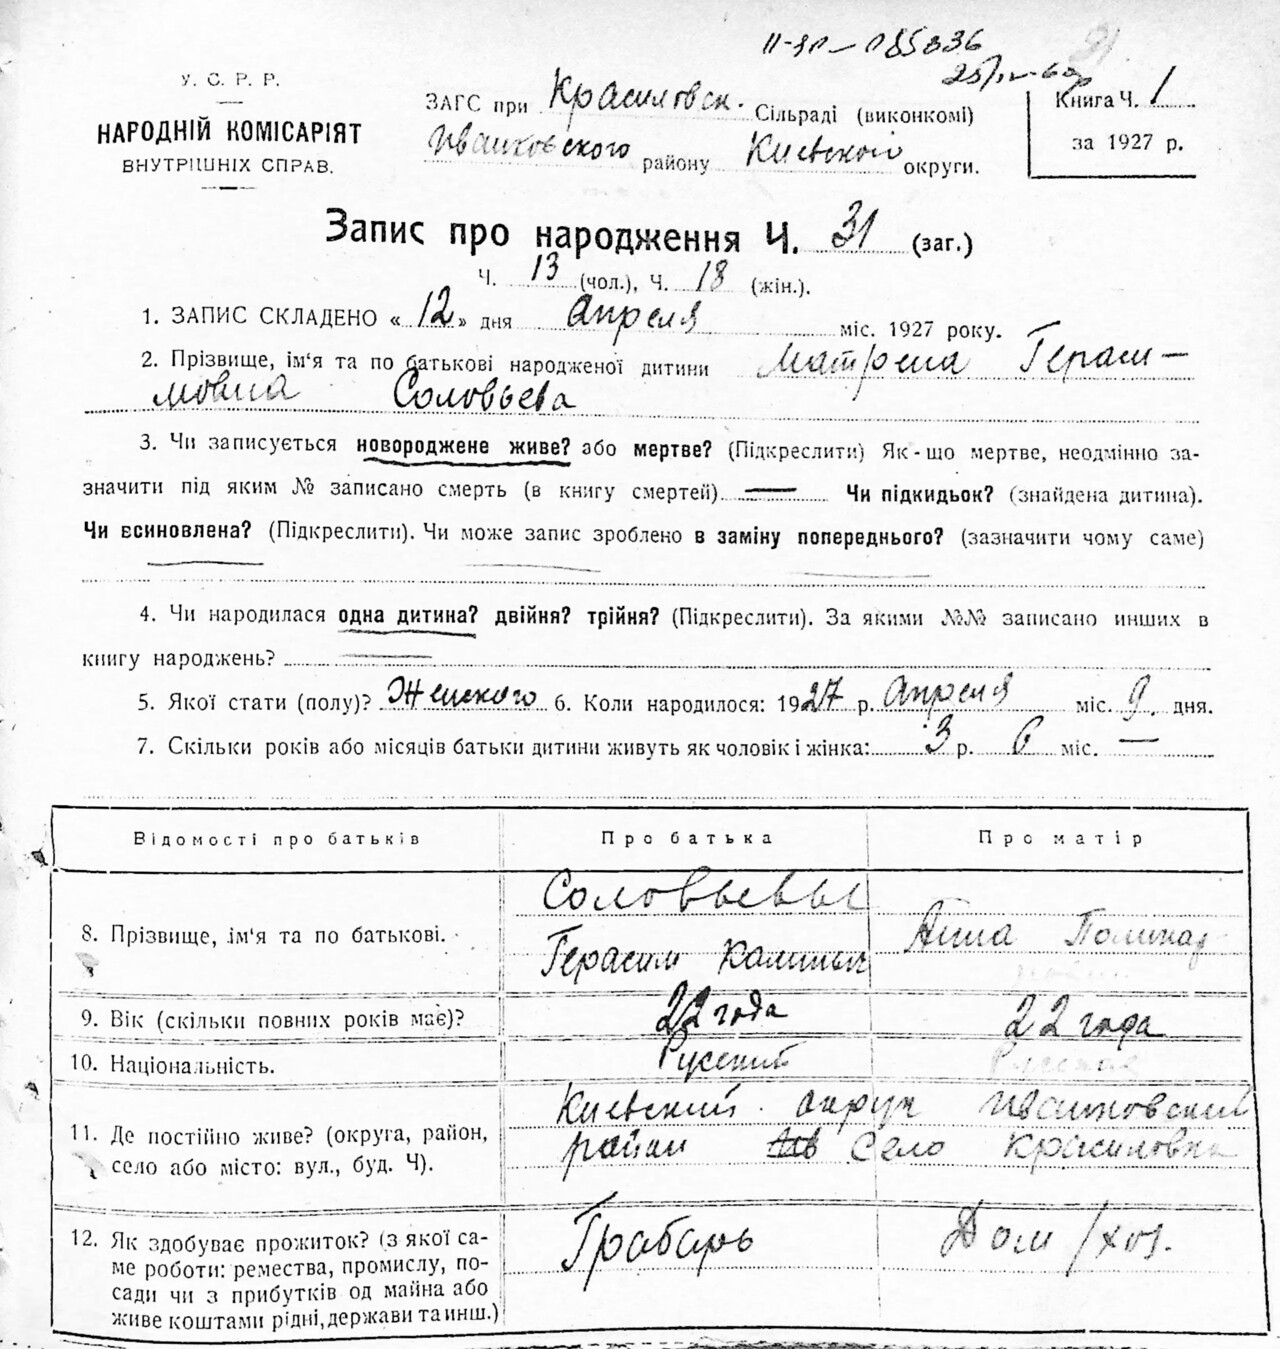 II-ЯП-085836
25/IV-60р
У. С. Р. Р.
НАРОДНІЙ КОМІСАРІЯТ
ВНУТРІШНІХ СПРАВ.
ЗАГС при Красиловск. Сільраді (виконкомі)
Иванковского району Киевской округи.
Книга Ч. 1
за 1927 р.
Запис про народження Ч. 31 (заг.)
Ч. 13 (чол.), Ч. 18 (жін.).
1. ЗАПИС СКЛАДЕНО «12» дня Апреля міс. 1927 року.
2. Прізвище, ім'я та по батькові народженої дитини Матрена Гераси-
мовна Соловьева
3. Чи записується новороджене живе? або мертве? (Підкреслити) Як-що мертве, неодмінно за-
значити під яким № записано смерть (в книгу смертей) — Чи підкидьок? (знайдена дитина).
Чи всиновлена? (Підкреслити). Чи може запис зроблено в заміну попереднього? (зазначити чому саме)
4. Чи народилася одна дитина? двійня? трійня? (Підкреслити). За якими №№ записано инших в
книгу народжень? —
5. Якої стати (полу)? Женского 6. Коли народилося: 1927 р. Апреля міс. 9 дня.
7. Скільки років або місяців батьки дитини живуть як чоловік і жінка: 3 р. 6 міс. —
Відомості про батьків
Про батька
Про матір
8. Прізвище, ім'я та по батькові.
Соловьевы
Герасим Калиныч
Анна
9. Вік (скільки повних років має)?
22 года
22 года
10. Національність.
Русский
Русская
11. Де постійно живе? (округа, район,
село або місто: вул., буд. Ч).
Киевский округ Иванковский
район Село Красиловка
12. Як здобуває прожиток? (з якої са-
ме роботи: ремества, промислу, по-
сади чи з прибутків од майна або
живе коштами рідні, держави та инш.)
Грабарь
Дом/хоз.